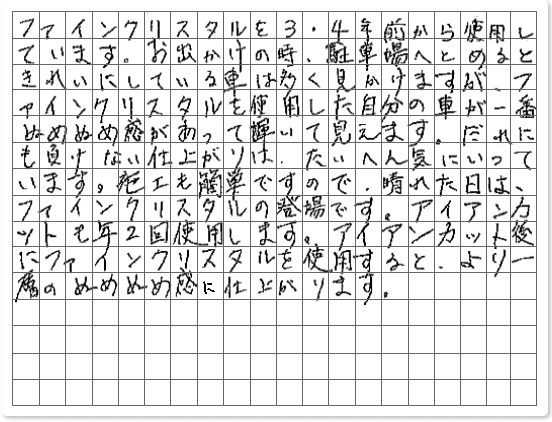 ファインクリスタルを3・4年前から使用し
ています。お出かけの時、駐車場へとめると
きれいにしている車は多く見かけますが、フ
ァインクリスタルを使用した自分の車が一番
ぬめぬめ感があって輝いて見えます。だれに
も負けない仕上がりは、たいへん気にいって
います。施工も簡単ですので、晴れた日は、
ファインクリスタルの登場です。アイアンカ
ットも年2回使用します。アイアンカット後
にファインクリスタルを使用すると、より一
層のぬめぬめ感に仕上がります。